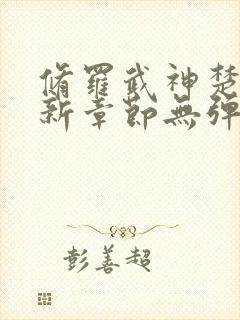 脩羅武神楚
新章節無彈
彭善超